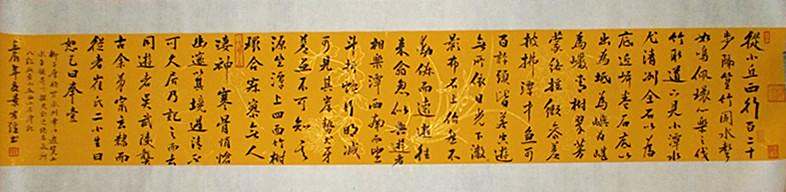 從小丘西行百二十
步隔篁竹聞水聲
如鳴佩環心樂之伐
竹取道下見小潭水
尤清冽全石以為
底近岸卷石底以
出為坻為嶼為嵁
為巖青樹翠蔓
蒙絡搖綴參差
披拂潭中魚可
百許頭皆若空遊
無所依日光下澈
影布石上佁然不
動俶而遠逝往
來翕忽似與遊者
相樂潭西南而望
斗折蛇行明滅
可見其岸勢犬牙
差互不可知其
源坐潭上四面竹樹
環合寂寥無人
淒神寒骨悄愴
幽邃以其境過清不
可久居乃記之而去
同遊者吳武陵龔
古余弟宗玄隸而
從者崔氏二小生曰
恕己曰奉壹